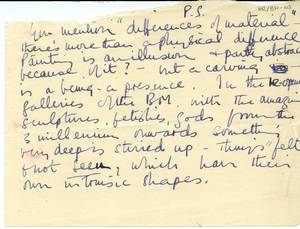 P.S.
You mention "differences of material
there's more than a physical difference
Painting is an illusion & partly abstract
because of it? – but a carving
is a being – a presence. In the
galleries of the B.M. with the amazing
sculptures, fetishes, gods from the
3 millenium onwards something
very deep is stirred up – things felt
& not seen, which have their
own intrinsic shapes.